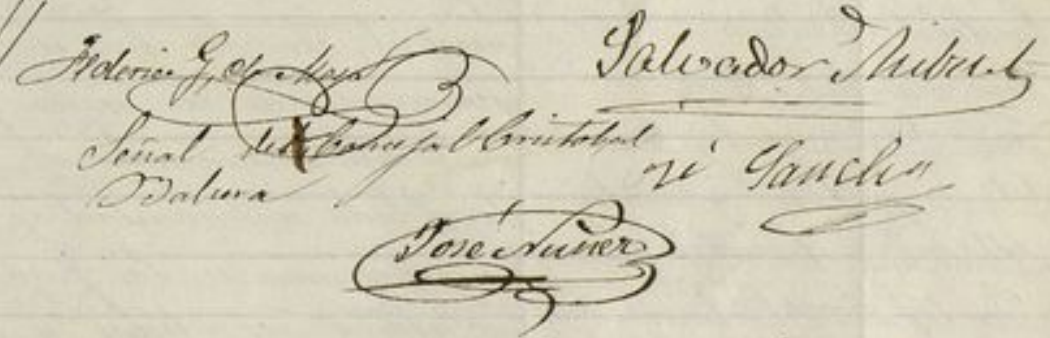 Federico G. de Moya
Salvador Ribert
Señal del Concejal Cristobal
Balmra
Sanchez
José Nuñez